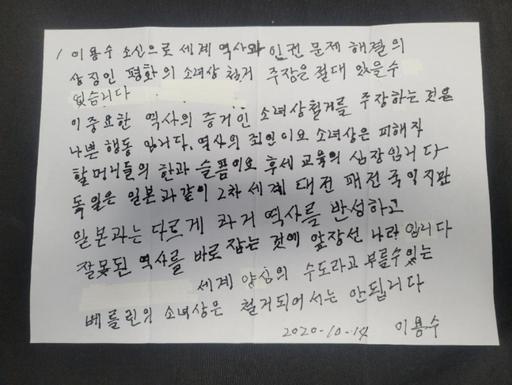 이용수 소신으로 세계 역사와 인권 문제 해결의
상징인 평화의 소녀상 철거 주장은 절대 있을수
없습니다
이 중요한 역사의 증거인 소녀상철거를 주장하는 것은
나쁜 행동 입니다. 역사의 죄인이요 소녀상은 피해자
할머니들의 한과 슬픔이요 후세 교육의 심장입니다
독일은 일본과같이 2차 세계 대전 패전 국이지만
일본과는 다르게 과거 역사를 반성하고
잘못된 역사를 바로 잡는 것에 앞장선 나라 입니다
세계 양심의 수도라고 부를수있는
베를린의 소녀상은 철거되어서는 안됩니다
2020-10-14 이용수